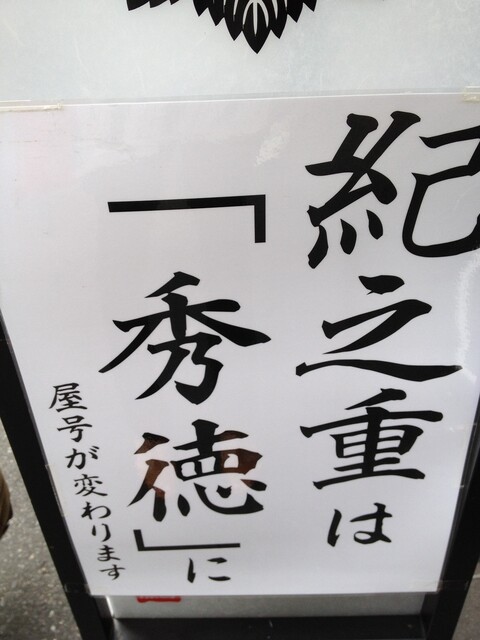 紀之重は
「秀徳」に
屋号が変わります